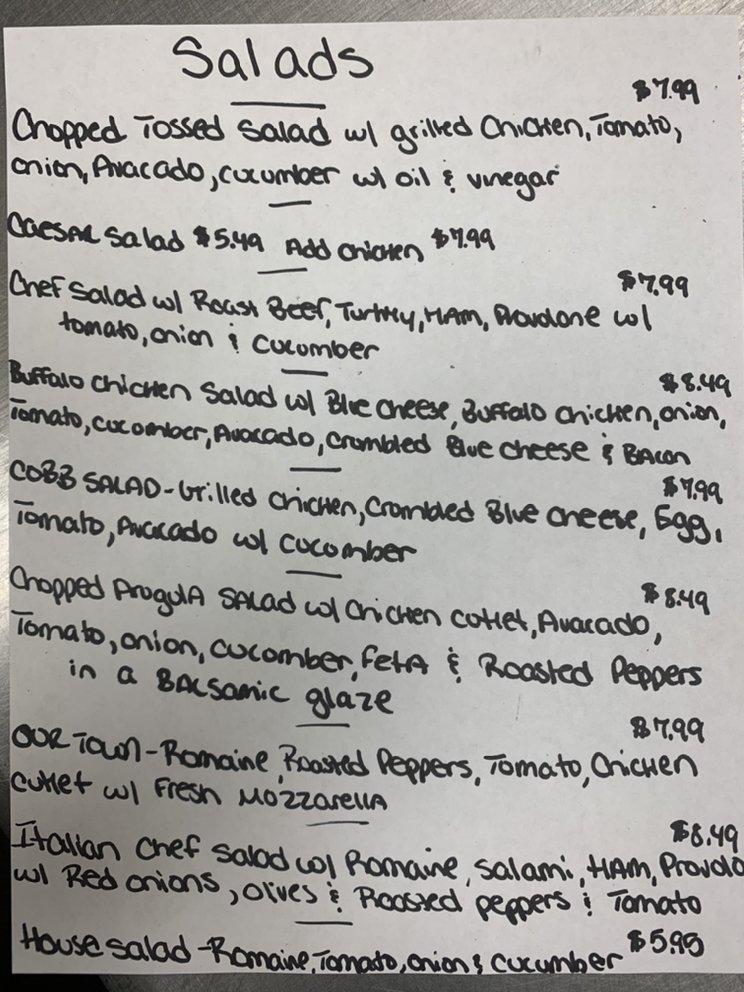 Salads
$7.99
Chopped Tossed Salad w/ grilled Chicken, Tomato,
onion, Avacado, cucumber w/ oil & vinegar
CAESAR Salad $5.49 Add Chicken $7.99
$7.99
Chef Salad w/ Roast Beef, Turkey, HAM, Provolone w/
tomato, onion & cucumber
$8.49
Buffalo Chicken Salad w/ Blue cheese, Buffalo chicken, onion,
Tomato, cucomber, Avocado, Crombled Blue cheese & BAcon
$7.99
COBB SALAD - Grilled Chicken, Crombled Blue cheese, Egg,
Tomato, Avacado w/ cucomber
$8.49
Chopped ArogulA SALAD w/ Chicken cutlet, Avacado,
Tomato, onion, cucomber, FetA & Roasted Peppers
in a BALsamic glaze
$7.99
OUR TOWN - Romaine, Roasted Peppers, Tomato, Chicken
Cutlet w/ Fresh MOZZARELLA
$8.49
Italian Chef Salad w/ Romaine, Salami, HAM, Provolo
w/ Red onions, olives & Roasted peppers & Tomato
House salad - Romaine, Tomato, onion & cucumber $5.95